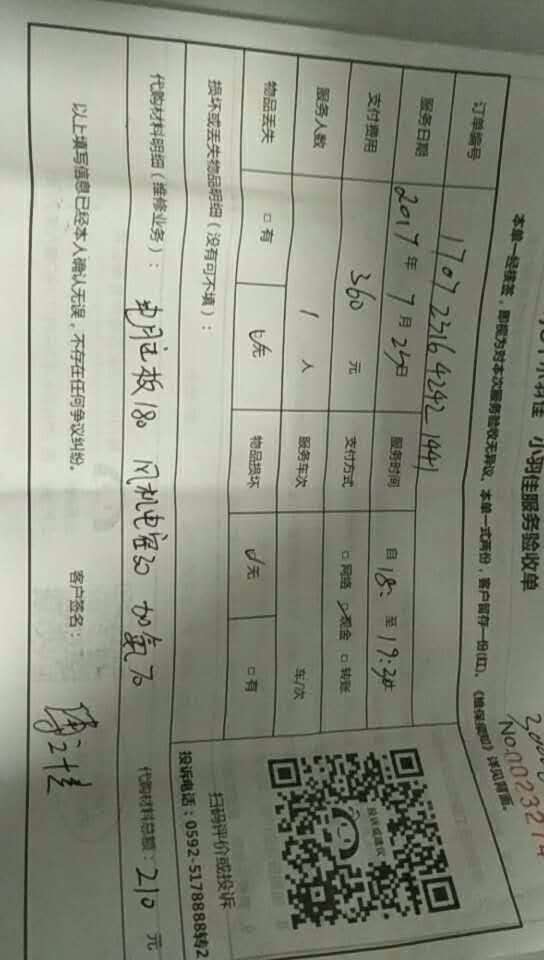 小羽佳 小羽佳服务验收单
No.0023214
本单一经接签，即视为对本次服务验收无异议。本单一式两份，客户留存一份(红)。《维保须知》详见背面。
订单编号 1707231642421441
服务日期 2017年7月23日 服务时间 自18: 至19:30
支付费用 360元 支付方式 □网络 ☑现金 □转账
服务人数 1人 服务车次 车/次
物品丢失 □有 ☑无 物品损坏 ☑无 □有
损坏或丢失物品明细（没有可不填）：
代购材料明细（维修业务）： 板180 风机电容30 加氟
代购材料总额：210元
以上填写信息已经本人确认无误，不存在任何争议纠纷。
客户签名：
投诉或建议
扫码评价或投诉
投诉电话：0592-5178888转2